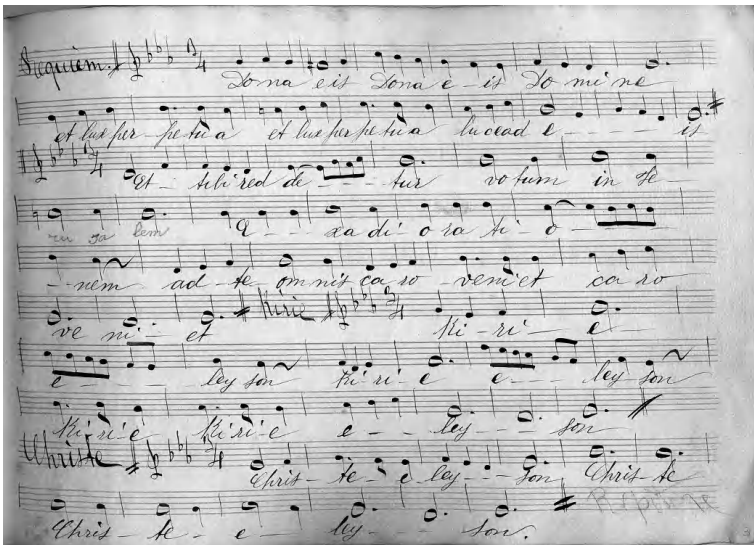 Requiem. 3/4
Dona eis Dona e-is Domine
et lux per-petua et lux perpetua lucead e - - - - is
3/4
Et - tibi red de - - - - tur votum in Je
ru sa lem E - - xa di-o ra ti-o - - - -
- - nem ad-te omnis caro - veniet caro
ve ni - et Kirie 3/4 Ki-ri - e
e - - - - ley son Kiri-e e - - - ley son
Ki-ri-e Kiri-e e - - ley - - son
Christe 3/4 Chris-te-e ley - - - son Chris-te
Chris - te - e - ley - - son.